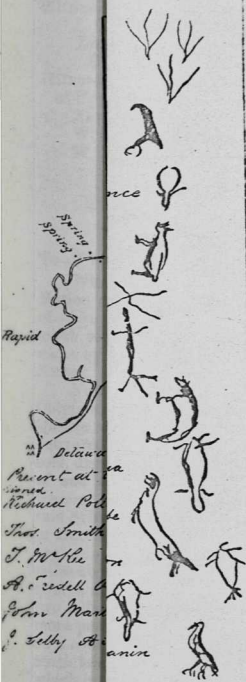 nce
Spring
Spring
Rapid
Delawa
Present at
Richard Poll
Thos. Smith
T. McKee
A. Iredell
John Mar
J. Selby
anin